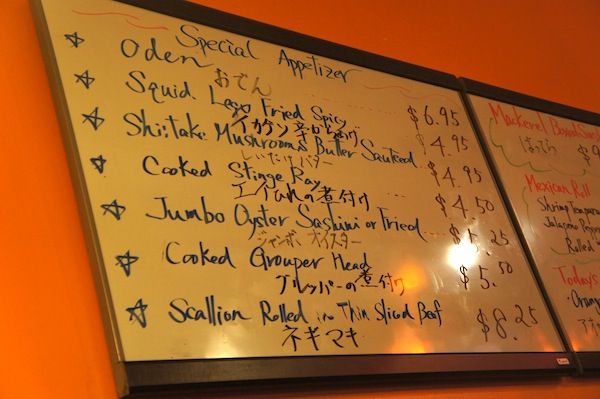 Special Appetizer
☆ Oden $6.95
おでん
☆ Squid Legs Fried Spicy $4.95
イカゲソ辛から揚げ
☆ Shiitake Mushrooms Butter Sauteed $4.95
しいたけバター
☆ Cooked Stinge Ray $4.50
エイひれの煮付け
☆ Jumbo Oyster Sashimi or Fried .25
ジャンボオイスター
☆ Cooked Grouper Head $5.50
グルッパーの煮付け
☆ Scallion Rolled in Thin Sliced Beef $8.25
ネギマキ
Mackerel Boxed
$9
Mexican Roll
Shrimp Tempura
Jalapeno
Rolled
Today's
Orange